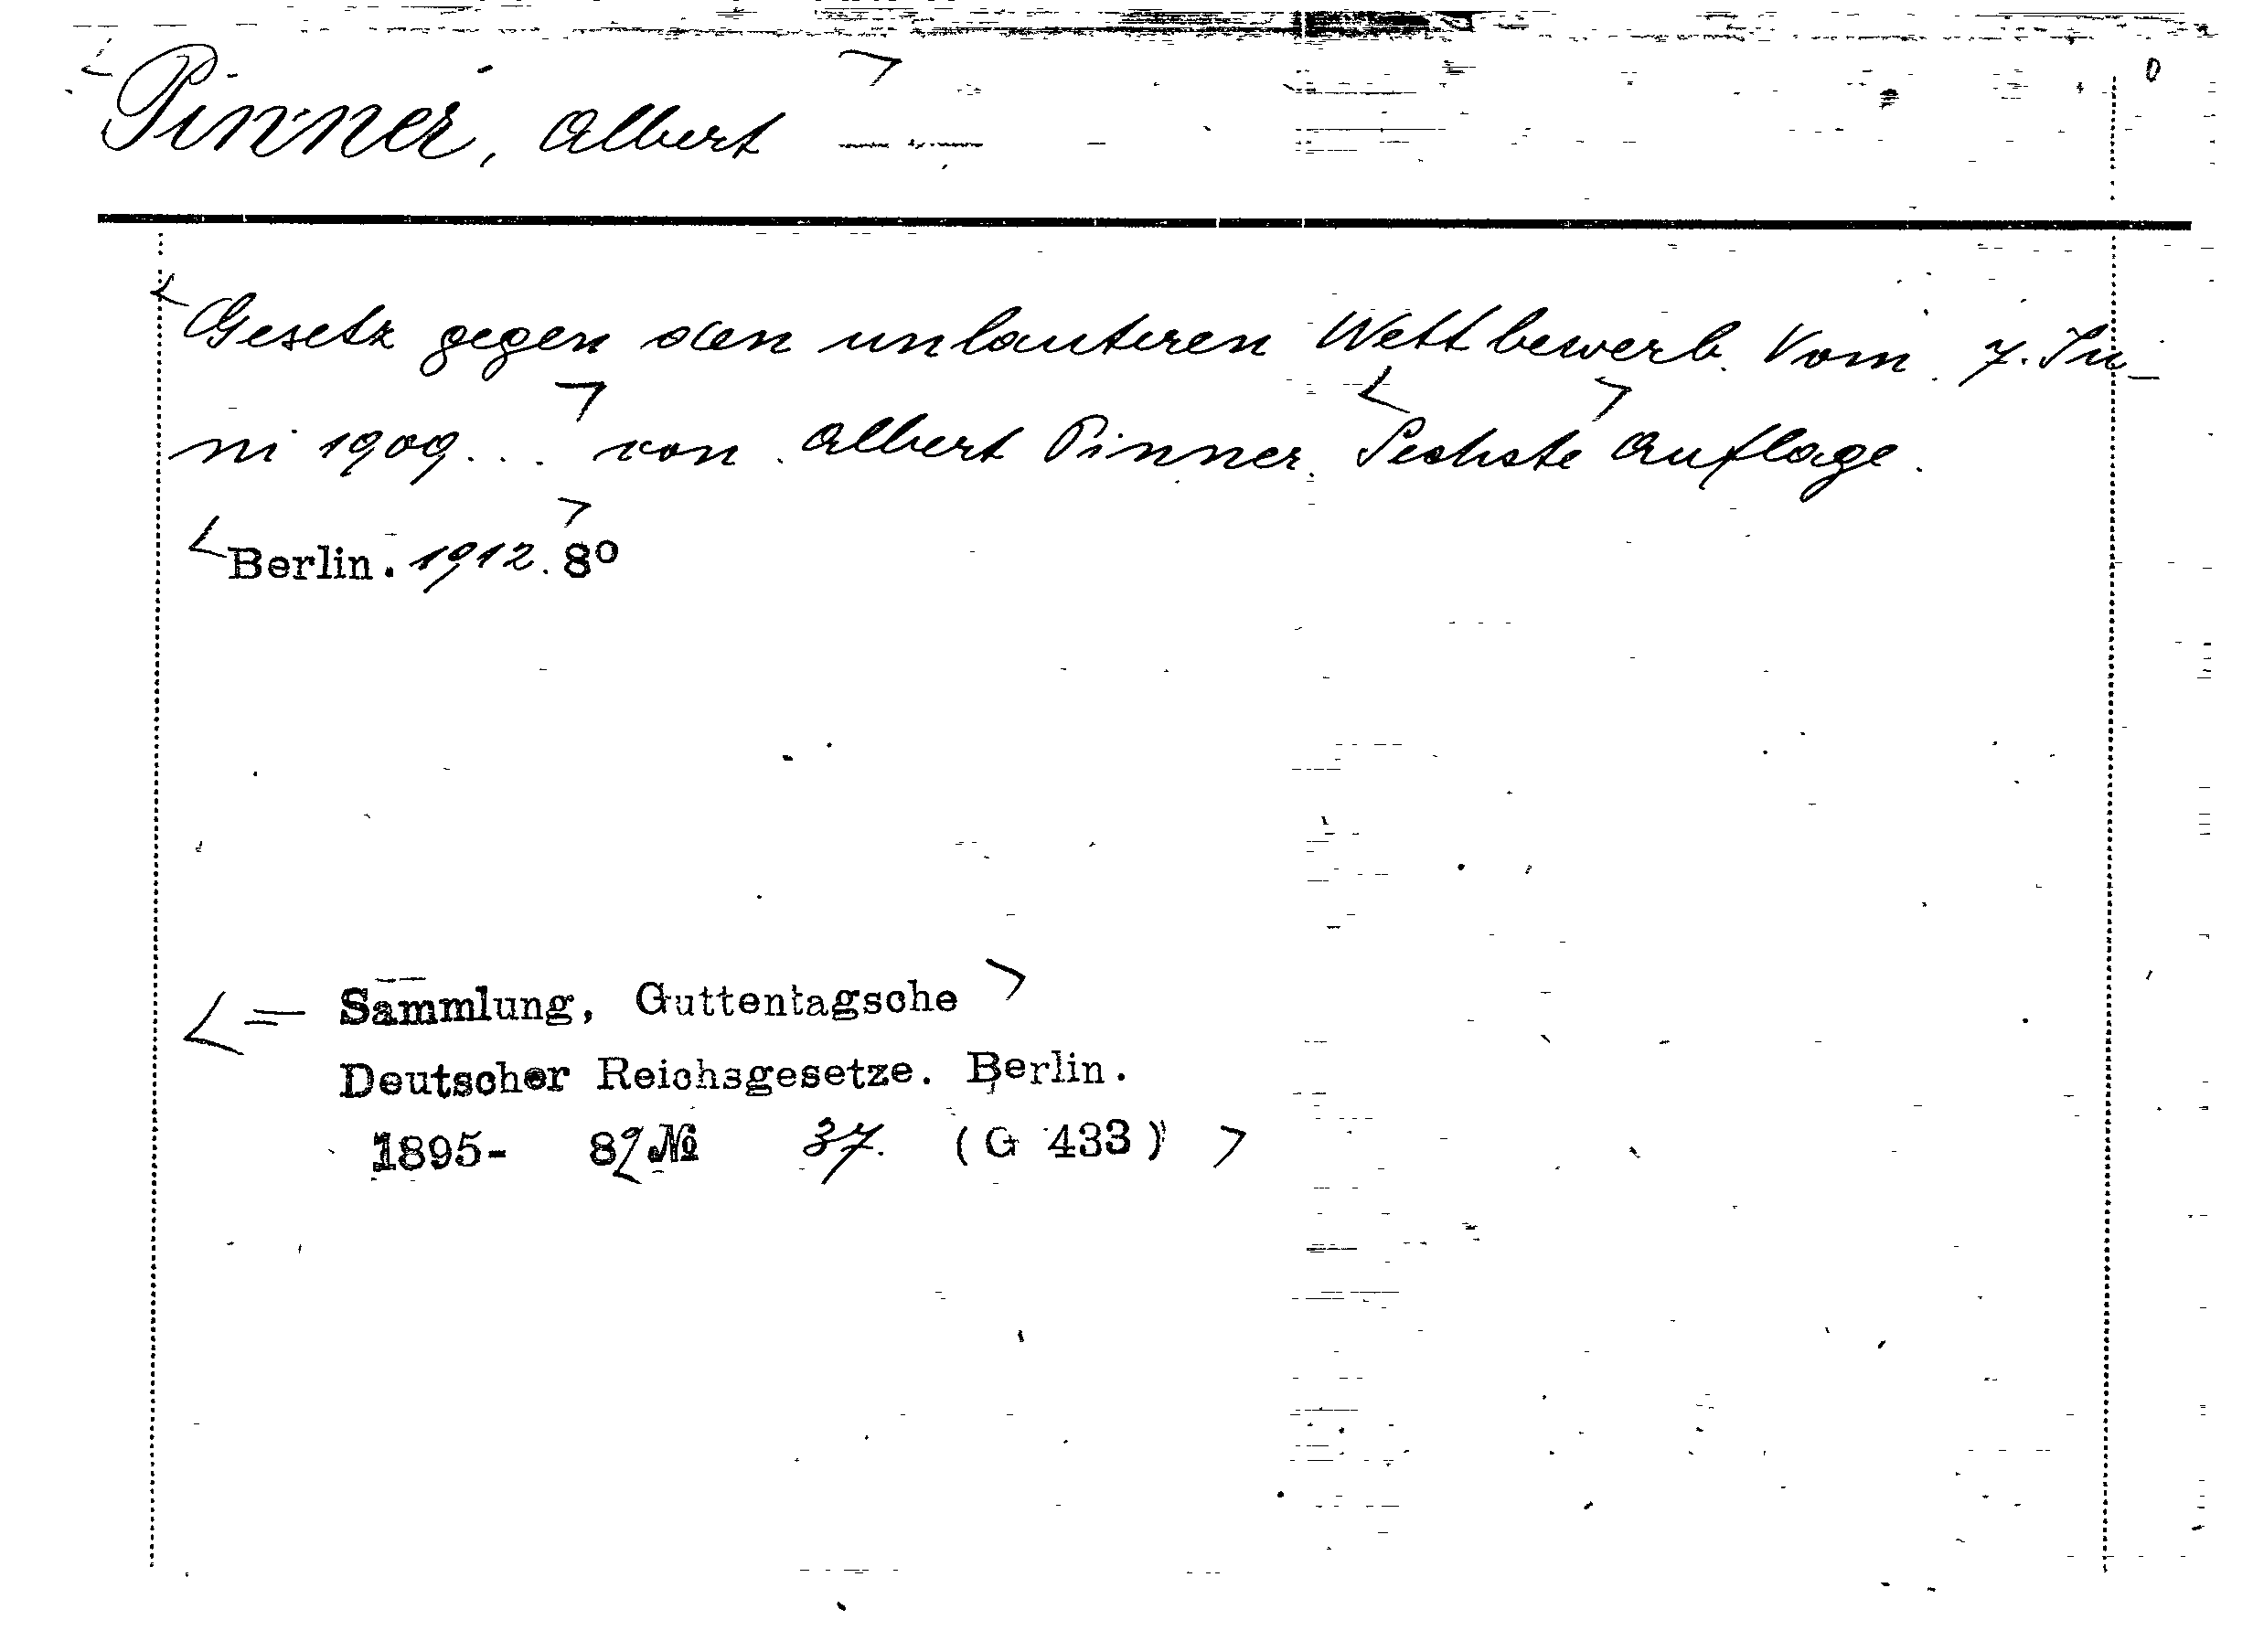 Pinner, Albert
Gesetz gegen den unlauteren Wettbewerb. Vom 7. Ju-
ni 1909... von Albert Pinner. Sechste Auflage.
Berlin. 1912. 8º
= Sammlung, Guttentagsche
Deutscher Reichsgesetze. Berlin.
1895- 8º № 37. (G 433)